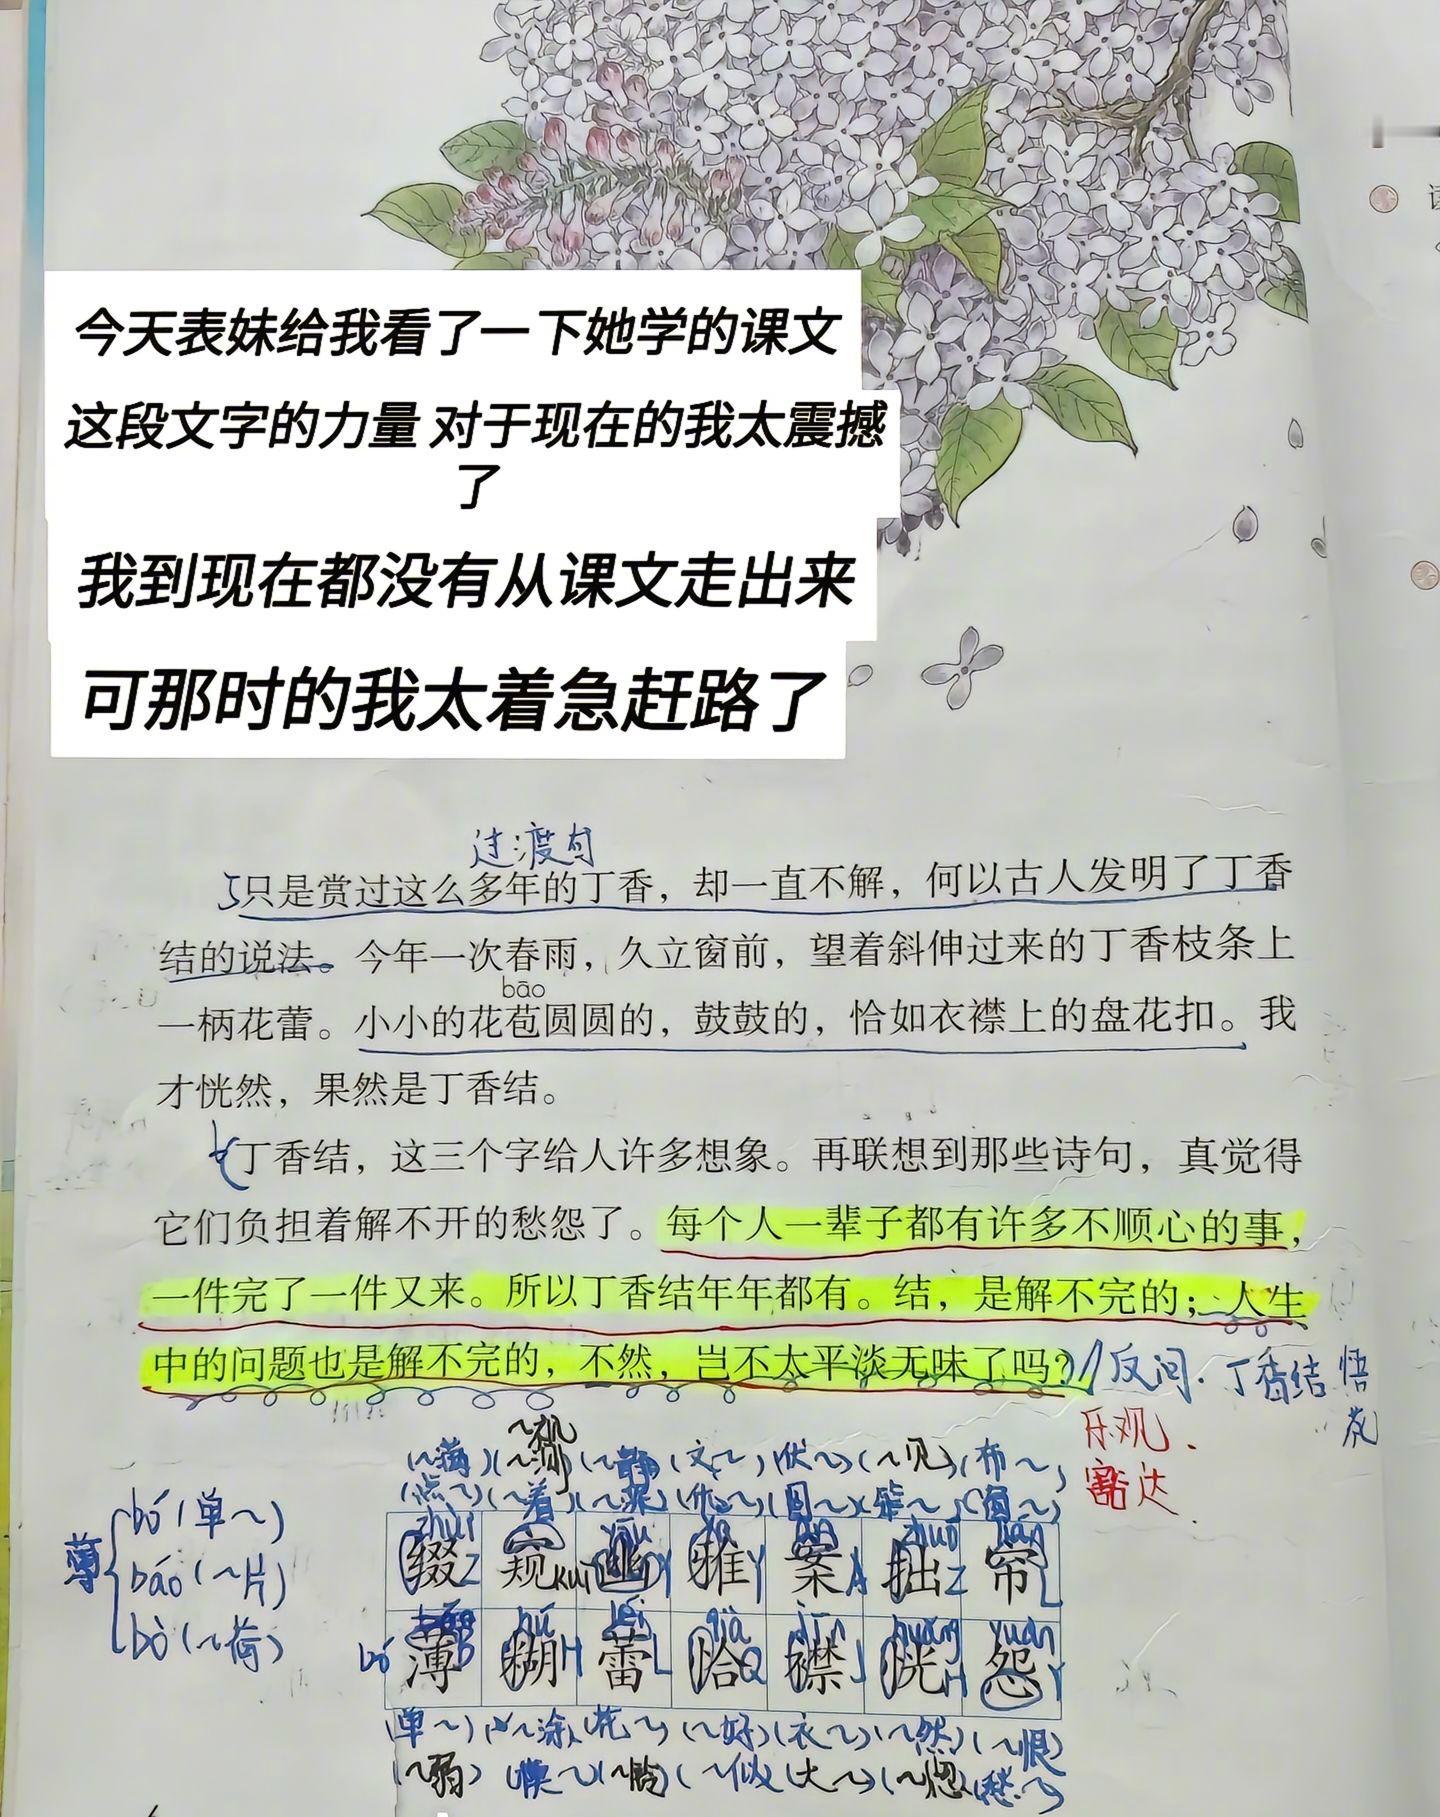 今天表妹给我看了一下她学的课文
这段文字的力量 对于现在的我太震撼
了
我到现在都没有从课文走出来
可那时的我太着急赶路了
过渡句
只是赏过这么多年的丁香，却一直不解，何以古人发明了丁香
结的说法。今年一次春雨，久立窗前，望着斜伸过来的丁香枝条上
bāo
一柄花蕾。小小的花苞圆圆的，鼓鼓的，恰如衣襟上的盘花扣。我
才恍然，果然是丁香结。
丁香结，这三个字给人许多想象。再联想到那些诗句，真觉得
它们负担着解不开的愁怨了。每个人一辈子都有许多不顺心的事，
一件完了一件又来。所以丁香结年年都有。结，是解不完的；人生
中的问题也是解不完的，不然，岂不太平淡无味了吗？
反问. 丁香结 悟
花
乐观.
豁达
(文~) (伏~) (~见) (布~)
(点~) (~着) (窗~)
zhuì yōu yǎ àn zhuō lián
缀Z 窥kuī 幽Y 雅Y 案A 拙Z 帘L
薄
bó (单~)
báo (~片)
bò (~荷)
hú lěi qià jīn huǎng yuàn
bó 薄B 糊H 蕾L 恰Q 襟J 恍H 怨Y
(单~) (~涂) (花~) (~好) (衣~) (~然) (~恨)
(~弱) (模~) (~似) (大~) (~惚) (愁~)